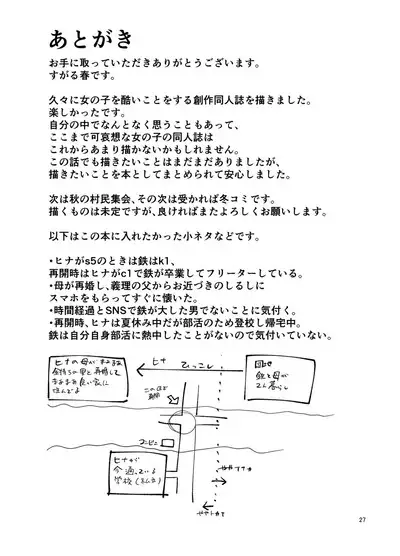 あとがき
お手に取っていただきありがとうございます。
すがる春です。
久々に女の子を酷いことをする創作同人誌を描きました。
楽しかったです。
自分の中でなんとなく思うこともあって、
ここまで可哀想な女の子の同人誌は
これからあまり描かないかもしれません。
この話でも描きたいことはまだまだありましたが、
描きたいことを本としてまとめられて安心しました。
次は秋の村民集会、その次は受かれば冬コミです。
描くものは未定ですが、良ければまたよろしくお願いします。
以下はこの本に入れたかった小ネタなどです。
・ヒナがs5のときは鉄はk1、
再開時はヒナがc1で鉄が卒業してフリーターしている。
・母が再婚し、義理の父からお近づきのしるしに
スマホをもらってすぐに懐いた。
・時間経過とSNSで鉄が大した男でないことに気付く。
・再開時、ヒナは夏休み中だが部活のため登校し帰宅中。
鉄は自分自身部活に熱中したことがないので気付いていない。
ヒナの母がまあまあ
金持ちの男と再婚して
まあまあ良い家に
住んでる
ひっこし
団地
鉄と母が
2人暮らし
このへんで
再開
コンビニ
ヒナが
今通っている
学校(私立)
27